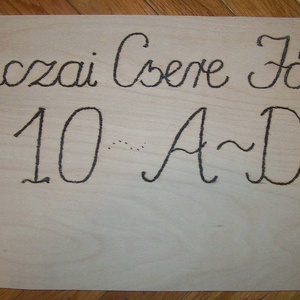 czai Csere Já
10 ~ A~D